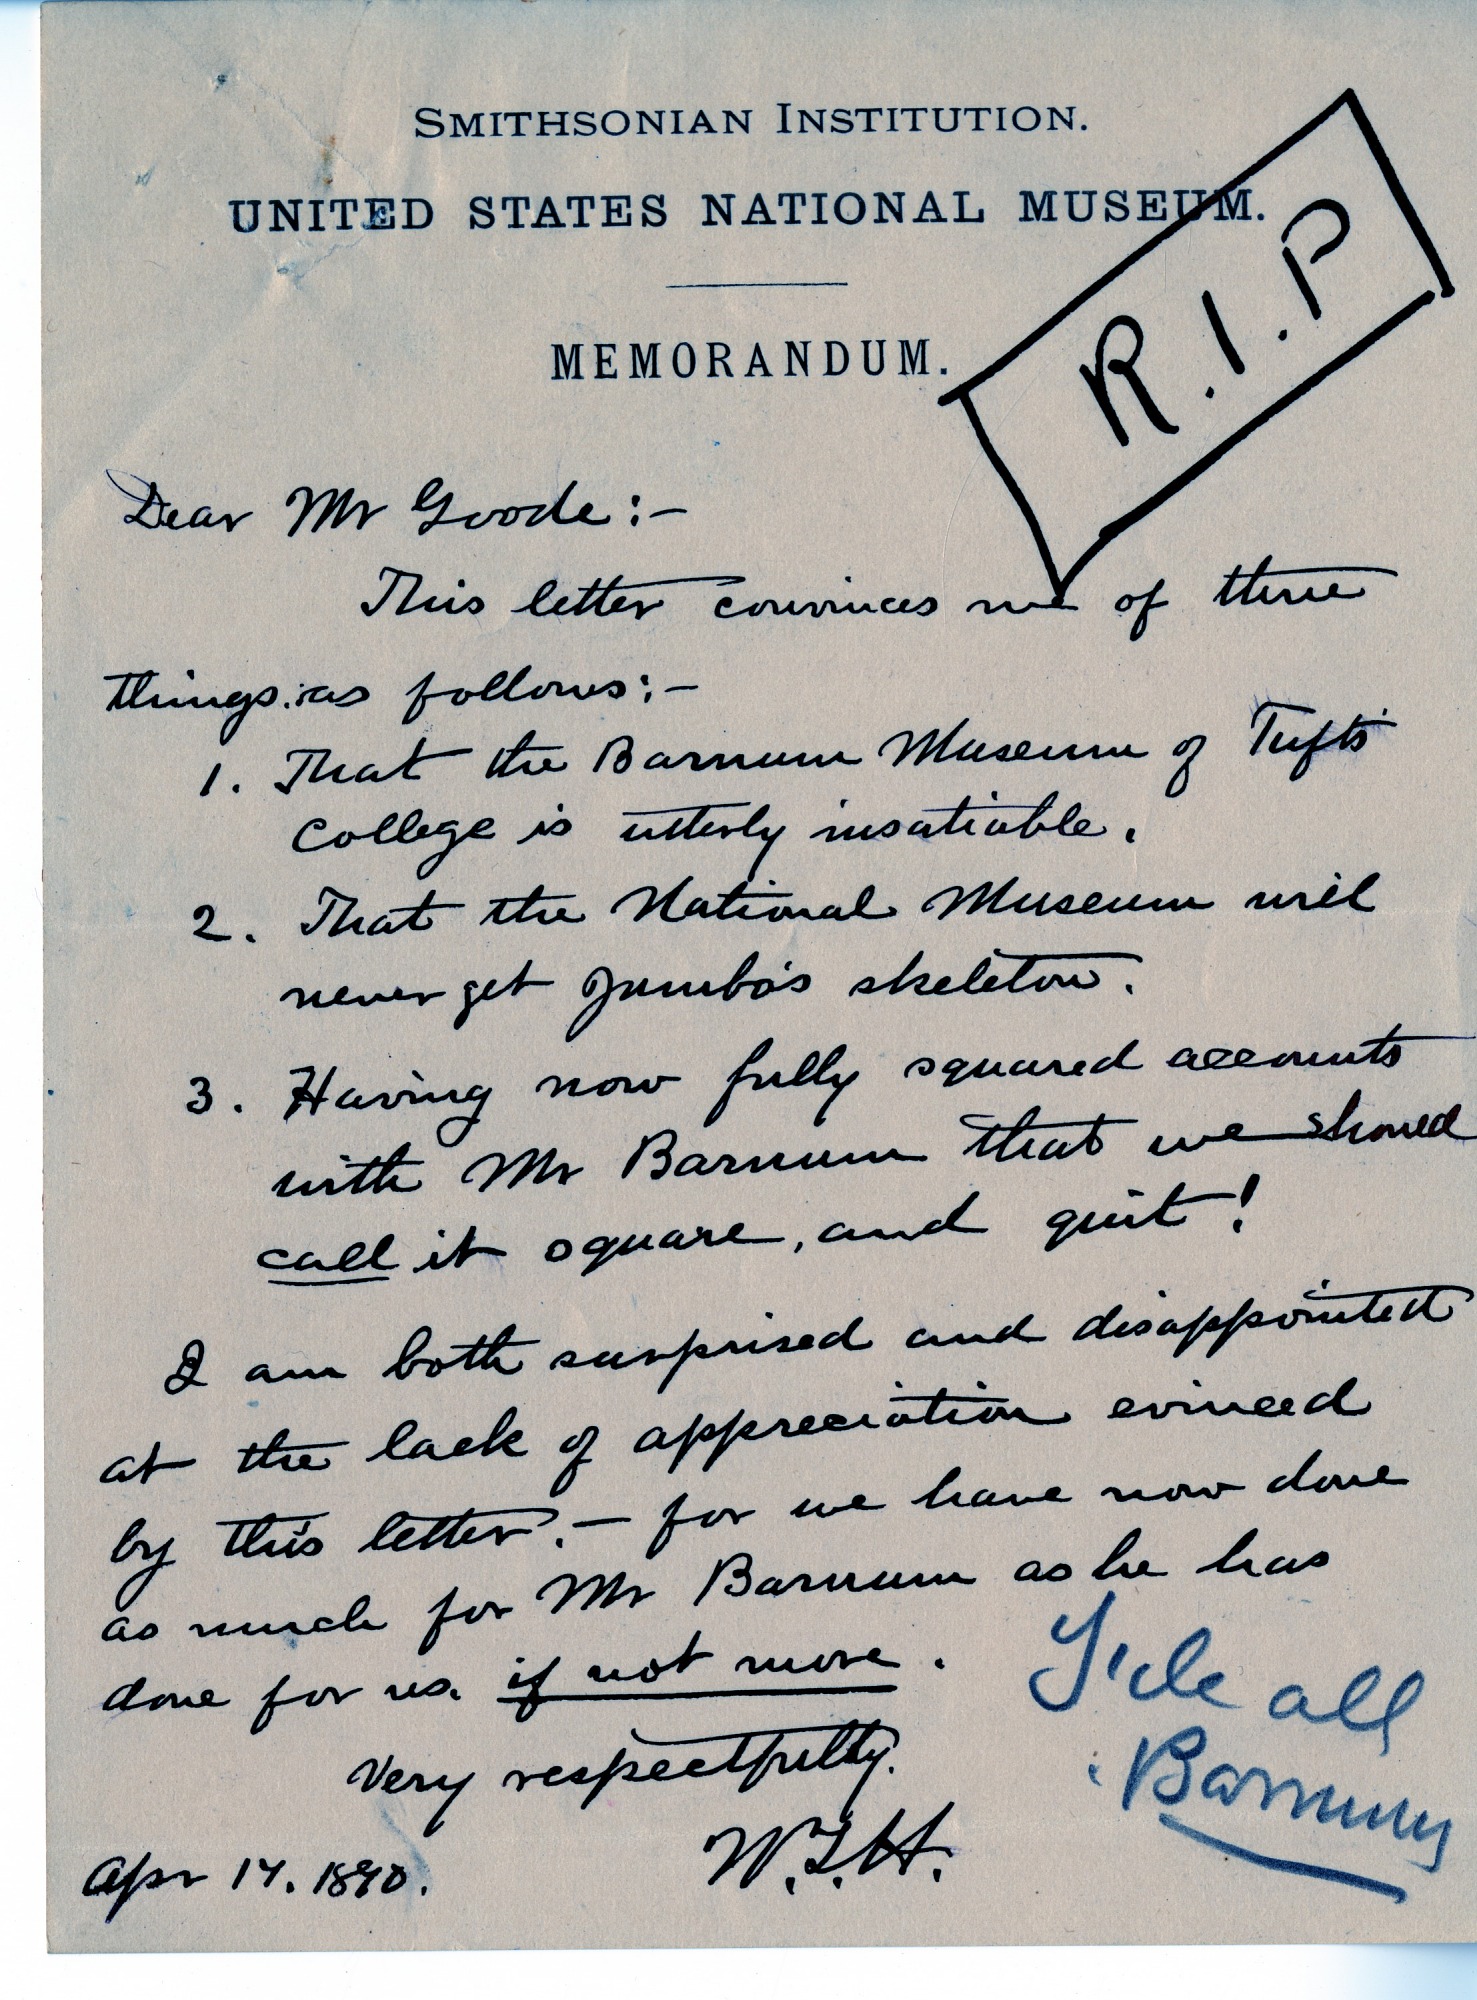 SMITHSONIAN INSTITUTION.
UNITED STATES NATIONAL MUSEUM.
MEMORANDUM.
R.I.P
Dear Mr Goode:-
This letter convinces me of three
things: as follows:-
1. That the Barnum Museum of Tufts
College is utterly insatiable.
2. That the National Museum will
never get Jumbo's skeleton.
3. Having now fully squared accounts
with Mr Barnum that we should
call it square, and quit!
I am both surprised and disappointed
at the lack of appreciation evinced
by this letter, - for we have now done
as much for Mr Barnum as he has
done for us. if not more.
Very respectfully.
W.T.H.
Apr 17. 1890.
File all
Barnum